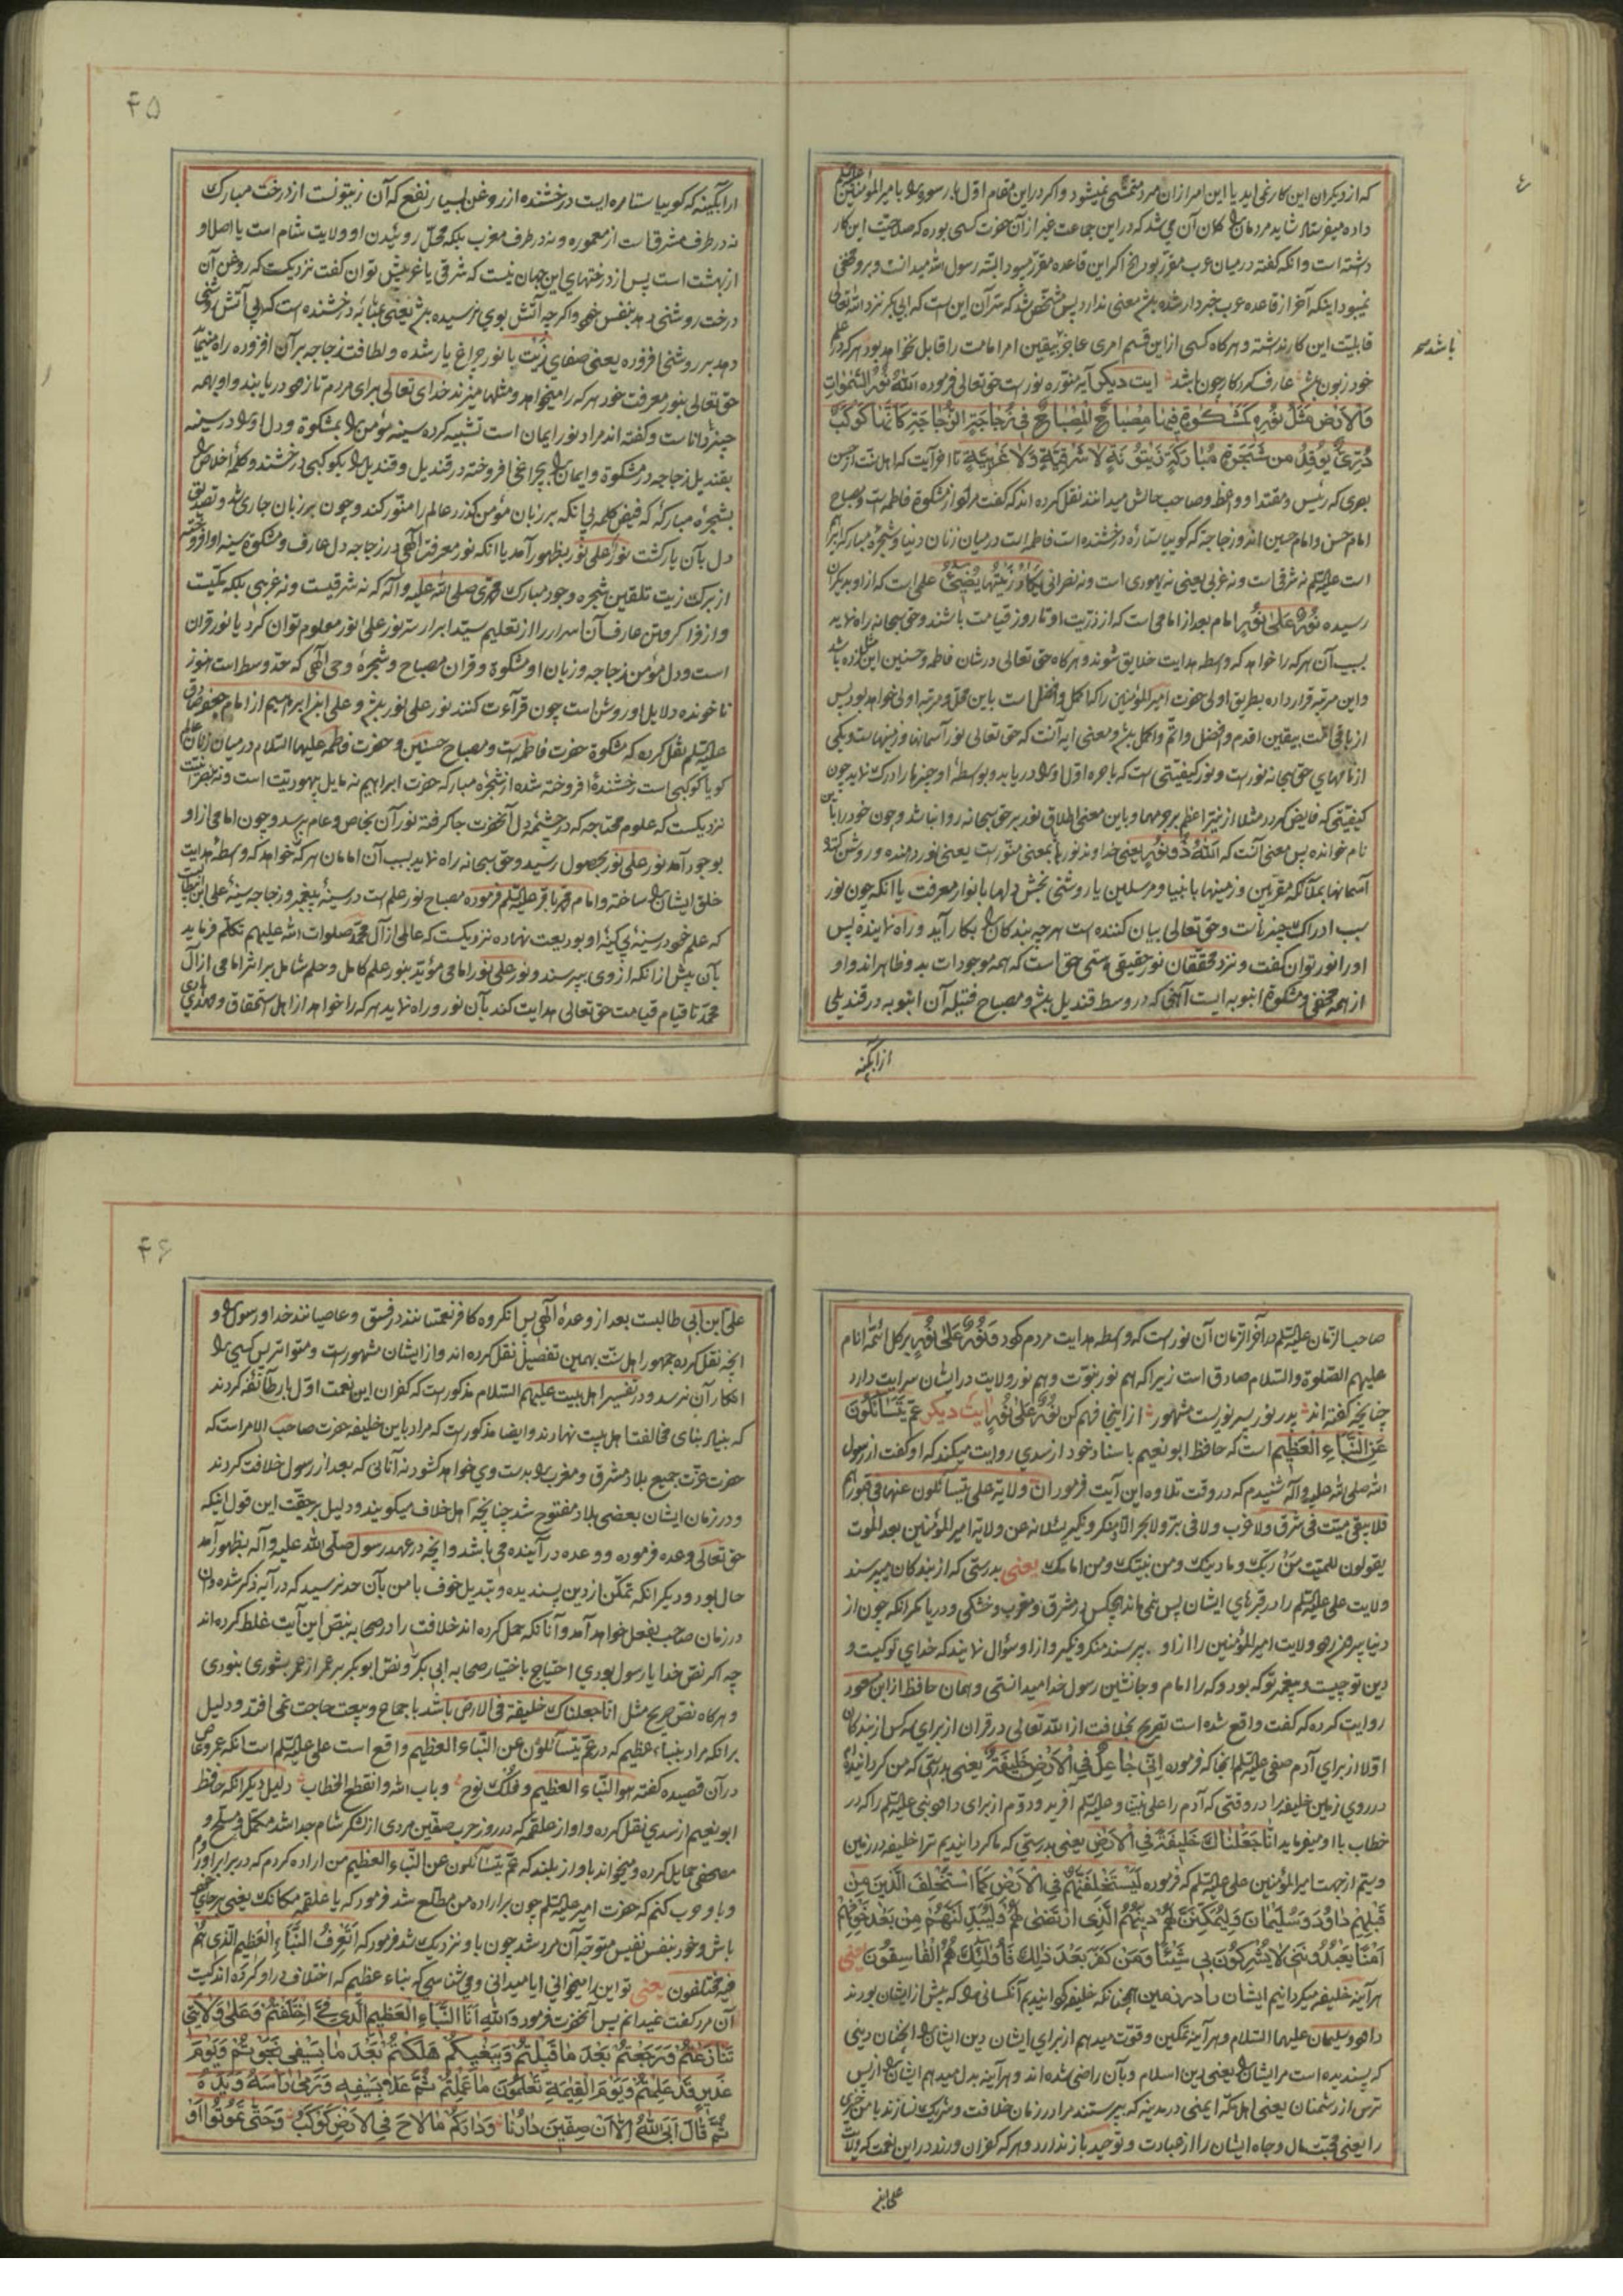 که از دیگران این کار نمی‌اید یا این امر ازان مرد متمشی نمیشود و اگر در این مقام اول بار رسوره را بامیرالمؤمنین علیه السلم
داده میفرستاد شاید مردمان را کان آن می شد که در این جماعت غیر از آن حضرت کسی بوده که صلاحیت این کار
داشته است و انکه گفته در میان عرب مقرر بود الخ اکر این قاعده مقرر میبود البته رسول الله میدانست و برو مخفی
نمیبود اینکه آخر از قاعده عرب خبردار شده باشد معنی ندارد پس مشخص شد که سر آن این است که ابی بکر نزد الله تعالی
قابلیت این کار نداشته و هرکاه کسی از این قسم امری عاجز بیقین امر امامت را قابل نخواهد بود هرکه در علم
باشد
خود زبون باشد عارف کردکار چون باشد ایت دیکر آیه منوره نور است حق تعالی فرموده الله نور السموات
والارض مثل نوره کمشکوة فیها مصباح المصباح فی زجاجة الزجاجة کانها کوکب
دری یوقد من شجرة مبارکة زیتونة لا شرقیة ولا غربیة تا اخر آیت که اهل سنت از حسن
بصری که رئیس و مقتدا و واعظ و صاحب حالش میدانند نقل کرده اند که گفت مراد از مشکوة فاطمه است و مصباح
امام حسن و امام حسین اند و زجاجة که کوییا ستاره درخشنده است فاطمه است در میان زنان دنیا و شجره مبارکه ابراهیم
است علیه السلم نه شرقی است و نه غربی یعنی نه یهودی است و نه نصرانی یکاد زیتها یضیئ علی است که از او بدیکران
رسیده نور علی نور امام بعد از امامی است که از ذریت او تا روز قیامت باشند و حق سبحانه راه نماید
بسبب آن هرکه را خواهد که واسطه هدایت خلایق شوند و هرکاه حق تعالی در شان فاطمه و حسنین این مثل زده باشد
و این مرتبه قرار داده بطریق اولی حضرت امیرالمؤمنین را که اکمل و افضل است باین محل و مرتبه اولی خواهد بود پس
از باقی امت بیقین اقدم و افضل و اتم و اکمل باشد و معنی ایه آنست که حق تعالی نور آسمانها و زمینهاست و یکی
از نامهای حق سبحانه نور است و نور کیفیتی است که باصره اول او را دریابد و بواسطه او چیزها را درک نماید چون
کیفیتی که فایض کردد مثلا از نیر اعظم بر جرمها و باین معنی اطلاق نور بر حق سبحانه روا نباشد و چون خود را باین
نام خوانده پس معنی آنست که الله ذو نور یعنی خداوند نور یا بمعنی منور است یعنی نور دهنده و روشن کننده
آسمانها بملائکه مقربین و زمینها بانبیا و مرسلین یا روشنی بخش دلها بانوار معرفت یا انکه چون نور
سبب ادراک چیزهاست و حق تعالی بیان کننده است هرچه بندکان را بکار آید و راه نماینده پس
او را نور توان گفت و نزد محققان نور حقیقی هستی حق است که همه موجودات بدو ظاهراند و او
از همه مخفی و مشکوة انبوبه ایست آهنی که در وسط قندیل باشد و مصباح فتیله آن انبوبه در قندیلی
از ابگینه
۴۵
از ابگینه که کوییا ستاره ایست درخشنده از روغن بسیار نفع که آن زیتونست از درخت مبارک
نه در طرف مشرق است از معموره و نه در طرف مغرب بلکه محل روئیدن او ولایت شام است یا اصل او
از بهشت است پس از درختهای این جهان نیست که شرقی یا غربیش توان گفت نزدیکست که روغن آن
درخت روشنی دهد بنفس خود واکرچه آتش بوی نرسیده باشد یعنی بمثابه درخشنده است که بی آتش روشنی
دهد بر روشنی افزوده یعنی صفای زیت با نور چراغ یار شده و لطافت زجاجه بر آن افزوده راه مینماید
حق تعالی بنور معرفت خود هرکه را میخواهد و مثلها میزند خدای تعالی برای مردم تا زود دریابند و او بهمه
چیز داناست و گفته اند مراد نور ایمان است تشبیه کرده سینه مؤمن را بمشکوة و دل او را در سینه
بقندیل زجاجه در مشکوة و ایمان را بچراغی افروخته در قندیل و قندیل را بکوکبی درخشنده و کلمه اخلاص را
بشجره مبارکه که فیض کلمه بی انکه بر زبان مؤمن کذرد عالم را منور کند و چون بر زبان جاری شد و تصدیق
دل بآن یار کشت نور علی نور بظهور آمد یا انکه نور معرفت الهی در زجاجه دل عارف و مشکوة سینه او افروخته
از برکت زیت تلقین شجره وجود مبارک محمدی صلی الله علیه وآله که نه شرقیست و نه غربی بلکه مکیست
و از فرا کرفتن عارف آن اسرار را از تعلیم سید ابرار سر نور علی نور معلوم توان کرد یا نور قران
است و دل مؤمن زجاجه و زبان او مشکوة و قران مصباح و شجره وحی الهی که حد وسط است هنوز
ناخوانده دلایل او روشن است چون قرآءت کنند نور علی نور باشد و علی ابن ابراهیم از امام جعفر صادق
علیه السلم نقل کرده که مشکوة حضرت فاطمه است و مصباح حسنین و حضرت فاطمه علیها السلام در میان زنان عالم
کویا کوکبی است رخشنده افروخته شده از شجره مبارکه حضرت ابراهیم نه مایل بیهودیت است و نه بنصرانیت
نزدیکست که علوم محتاجه که در چشمه دل آنحضرت جا کرفته نور آن بخاص و عام برسد و چون امامی از او
بوجود آمد نور علی نور بحصول رسید و حق سبحانه راه نماید بسبب آن امامان هرکه خواهد که واسطه هدایت
خلق ایشان را ساخته و امام محمد باقر علیه السلم فرموده مصباح نور علم است در سینه پیغمبر و زجاجه سینه علی ابن ابیطالب
که علم خود در سینه بی کینه او بودیعت نهاده نزدیکست که عالمی از آل محمد صلوات الله علیهم تکلم فرماید
بآن پیش از انکه از وی بپرسند و نور علی نور امامی مؤید بنور علم کامل و حلم شامل بر اثر امامی از آل
محمد تا قیام قیامت حق تعالی هدایت کند بآن نور و راه نماید هرکه را خواهد از اهل استحقاق و مهدی هادی
صاحب الزمان علیه السلم در آخر الزمان آن نور است که واسطه هدایت مردم کردد فنور علی نور بر کل ائمه انام
علیهم الصلوة والسلام صادق است زیرا که هم نور نبوت و هم نور ولایت در ایشان سرایت دارد
چنانچه گفته اند پدر نور پسر نوریست مشهور از اینجا فهم کن نور علی نور ایت دیکر عم یتسائلون
عن النباء العظیم است که حافظ ابو نعیم باسناد خود از سدی روایت میکند که او گفت از رسول
الله صلی الله علیه وآله شنیدم که در وقت تلاوه این آیت فرمود ان ولایة علی یتسائلون عنها فی قبورهم
فلا یبقی میت فی شرق ولا غرب ولا فی بر ولا بحر الا ومنکر ونکیر یسئلانه عن ولایة امیرالمؤمنین بعد الموت
یقولون للمیت من ربک وما دینک ومن نبیک ومن امامک یعنی بدرستی که از بندکان میپرسند
ولایت علی علیه السلم را در قبرهای ایشان پس نمی ماند هیچکس در مشرق و مغرب و خشکی و دریا مکر انکه چون از
دنیا بیرون رود ولایت امیرالمؤمنین را از او بپرسند منکر و نکیر و از او سؤال نمایند که خدای تو کیست و
دین تو چیست و پیغمبر تو که بود و که را امام و جانشین رسول خدا میدانستی و همان حافظ از ابن مسعود
روایت کرده که گفت واقع شده است تصریح بخلافت از الله تعالی در قران از برای سه کس از بندکان
اولا از برای آدم صفی علیه السلم انجا که فرموده انی جاعل فی الارض خلیفة یعنی بدرستی که من کرداننده ام
در روی زمین خلیفه را در وقتی که آدم را علی نبینا و علیه السلم آفرید و دوم از برای داود نبی علیه السلم را که در
خطاب باو میفرماید انا جعلناک خلیفة فی الارض یعنی بدرستی که ما کردانیدیم ترا خلیفه در زمین
و سیم از جهت امیرالمؤمنین علی علیه السلم که فرموده لیستخلفنهم فی الارض کما استخلف الذین من
قبلهم داود وسلیمان ولیمکنن لهم دینهم الذی ارتضی لهم ولیبدلنهم من بعد خوفهم
امنا یعبدوننی لا یشرکون بی شیئا ومن کفر بعد ذلک فاولئک هم الفاسقون یعنی
هر آینه خلیفه میکردانیم ایشان را در زمین همچنانکه خلیفه کردانیدیم آنکسانی را که پیش از ایشان بودند
داود و سلیمان علیهما السلام و هر آینه تمکین و قوت میدهم از برای ایشان دین ایشان را انچنان دینی
که پسندیده است مر ایشان را یعنی دین اسلام و بآن راضی شده اند و هر آینه بدل میدهم ایشان را از پس
ترس از دشمنان یعنی اهل مکه ایمنی در مدینه که بپرستند مرا در زمان خلافت و شریک نسازند با من چیزی
را یعنی محبت مال و جاه ایشان را از عبادت و توحید باز ندارد و هرکه کفران ورزد در این نعمت که ولایت
علی ابن
۴۶
علی ابن ابی طالبست بعد از وعده الهی پس انکروه کافر نعمتانند در فسق و عاصیانند خدا و رسول را و
انچه نقل کرده جمهور اهل سنت بهمین تفصیل نقل کرده اند و از ایشان مشهور است و متواتر پس کسی را
انکار آن نرسد و در تفسیر اهل بیت علیهم السلام مذکور است که کفران این نعمت اول بار طائفه کردند
که بنیاد بنای مخالفت اهل بیت نهادند و ایضا مذکور است که مراد باین خلیفه حضرت صاحب الامر است که
حضرت عزت جمیع بلاد مشرق و مغرب را بدست وی خواهد کشود نه آنانی که بعد از رسول خلافت کردند
و در زمان ایشان بعضی بلاد مفتوح شد چنانچه اهل خلاف میکویند و دلیل بر حقیت این قول اینکه
حق تعالی وعده فرموده و وعده در آینده می باشد و انچه در عهد رسول صلی الله علیه وآله بظهور آمد
حال بود و دیکر انکه تمکن از دین پسندیده و تبدیل خوف بامن بآن حد نرسید که در آیه ذکر شده و آن
در زمان صاحب بفعل خواهد آمد و آنانکه حمل کرده اند خلافت را در صحابه بنص این آیت غلط کرده اند
چه اکر نص خدا یا رسول بودی احتیاج باختیار صحابه ابی بکر و نص ابو بکر بر عمر از عمر بشوری نبودی
و هرکاه نص صریح مثل انا جعلناک خلیفة فی الارض باشد باجماع و بیعت حاجت نمی افتد و دلیل
بر انکه مراد بنباء عظیم که در عم یتسآئلون عن النباء العظیم واقع است علی علیه السلم است انکه عمرو عاص
در آن قصیده گفته هو النباء العظیم وفلک نوح وباب الله وانقطع الخطاب دلیل دیکر انکه حافظ
ابو نعیم از سدی نقل کرده و او از علقمه که در روز حرب صفین مردی از لشکر شام جدا شد مکمل و مسلح و
مصحفی حمایل کرده و میخواند باواز بلند که عم یتسائلون عن النباء العظیم من اراده کردم که در برابر او روم
و با او حرب کنم که حضرت امیر علیه السلم چون بر اراده من مطلع شد فرمود که یا علقمه مکانک یعنی بر جای خود
باش و خود بنفس نفیس متوجه آن مرد شد چون باو نزدیک شد فرمود که اتعرف النباء العظیم الذی هم
فیه مختلفون یعنی تو این را میخوانی ایا میدانی و می شناسی که نباء عظیم که اختلاف در او کرده اند کیست
آن مرد گفت نمیدانم پس آنحضرت فرمود والله انا النباء العظیم الذی فی اختلفتم وعلی ولایتی
تنازعتم ورجعتم بعد ما قبلتم وببغیکم هلکتم بعد ما بسیفی نجوتم ویوم
غدیر قد علمتم ویوم القیمة تعلمون ما عملتم ثم علا بسیفه ورمی راسه ویده
ثم قال ابی الله الا ان صفین دارنا ودارکم ما لاح فی الارض کوکب وحتی تموتوا او